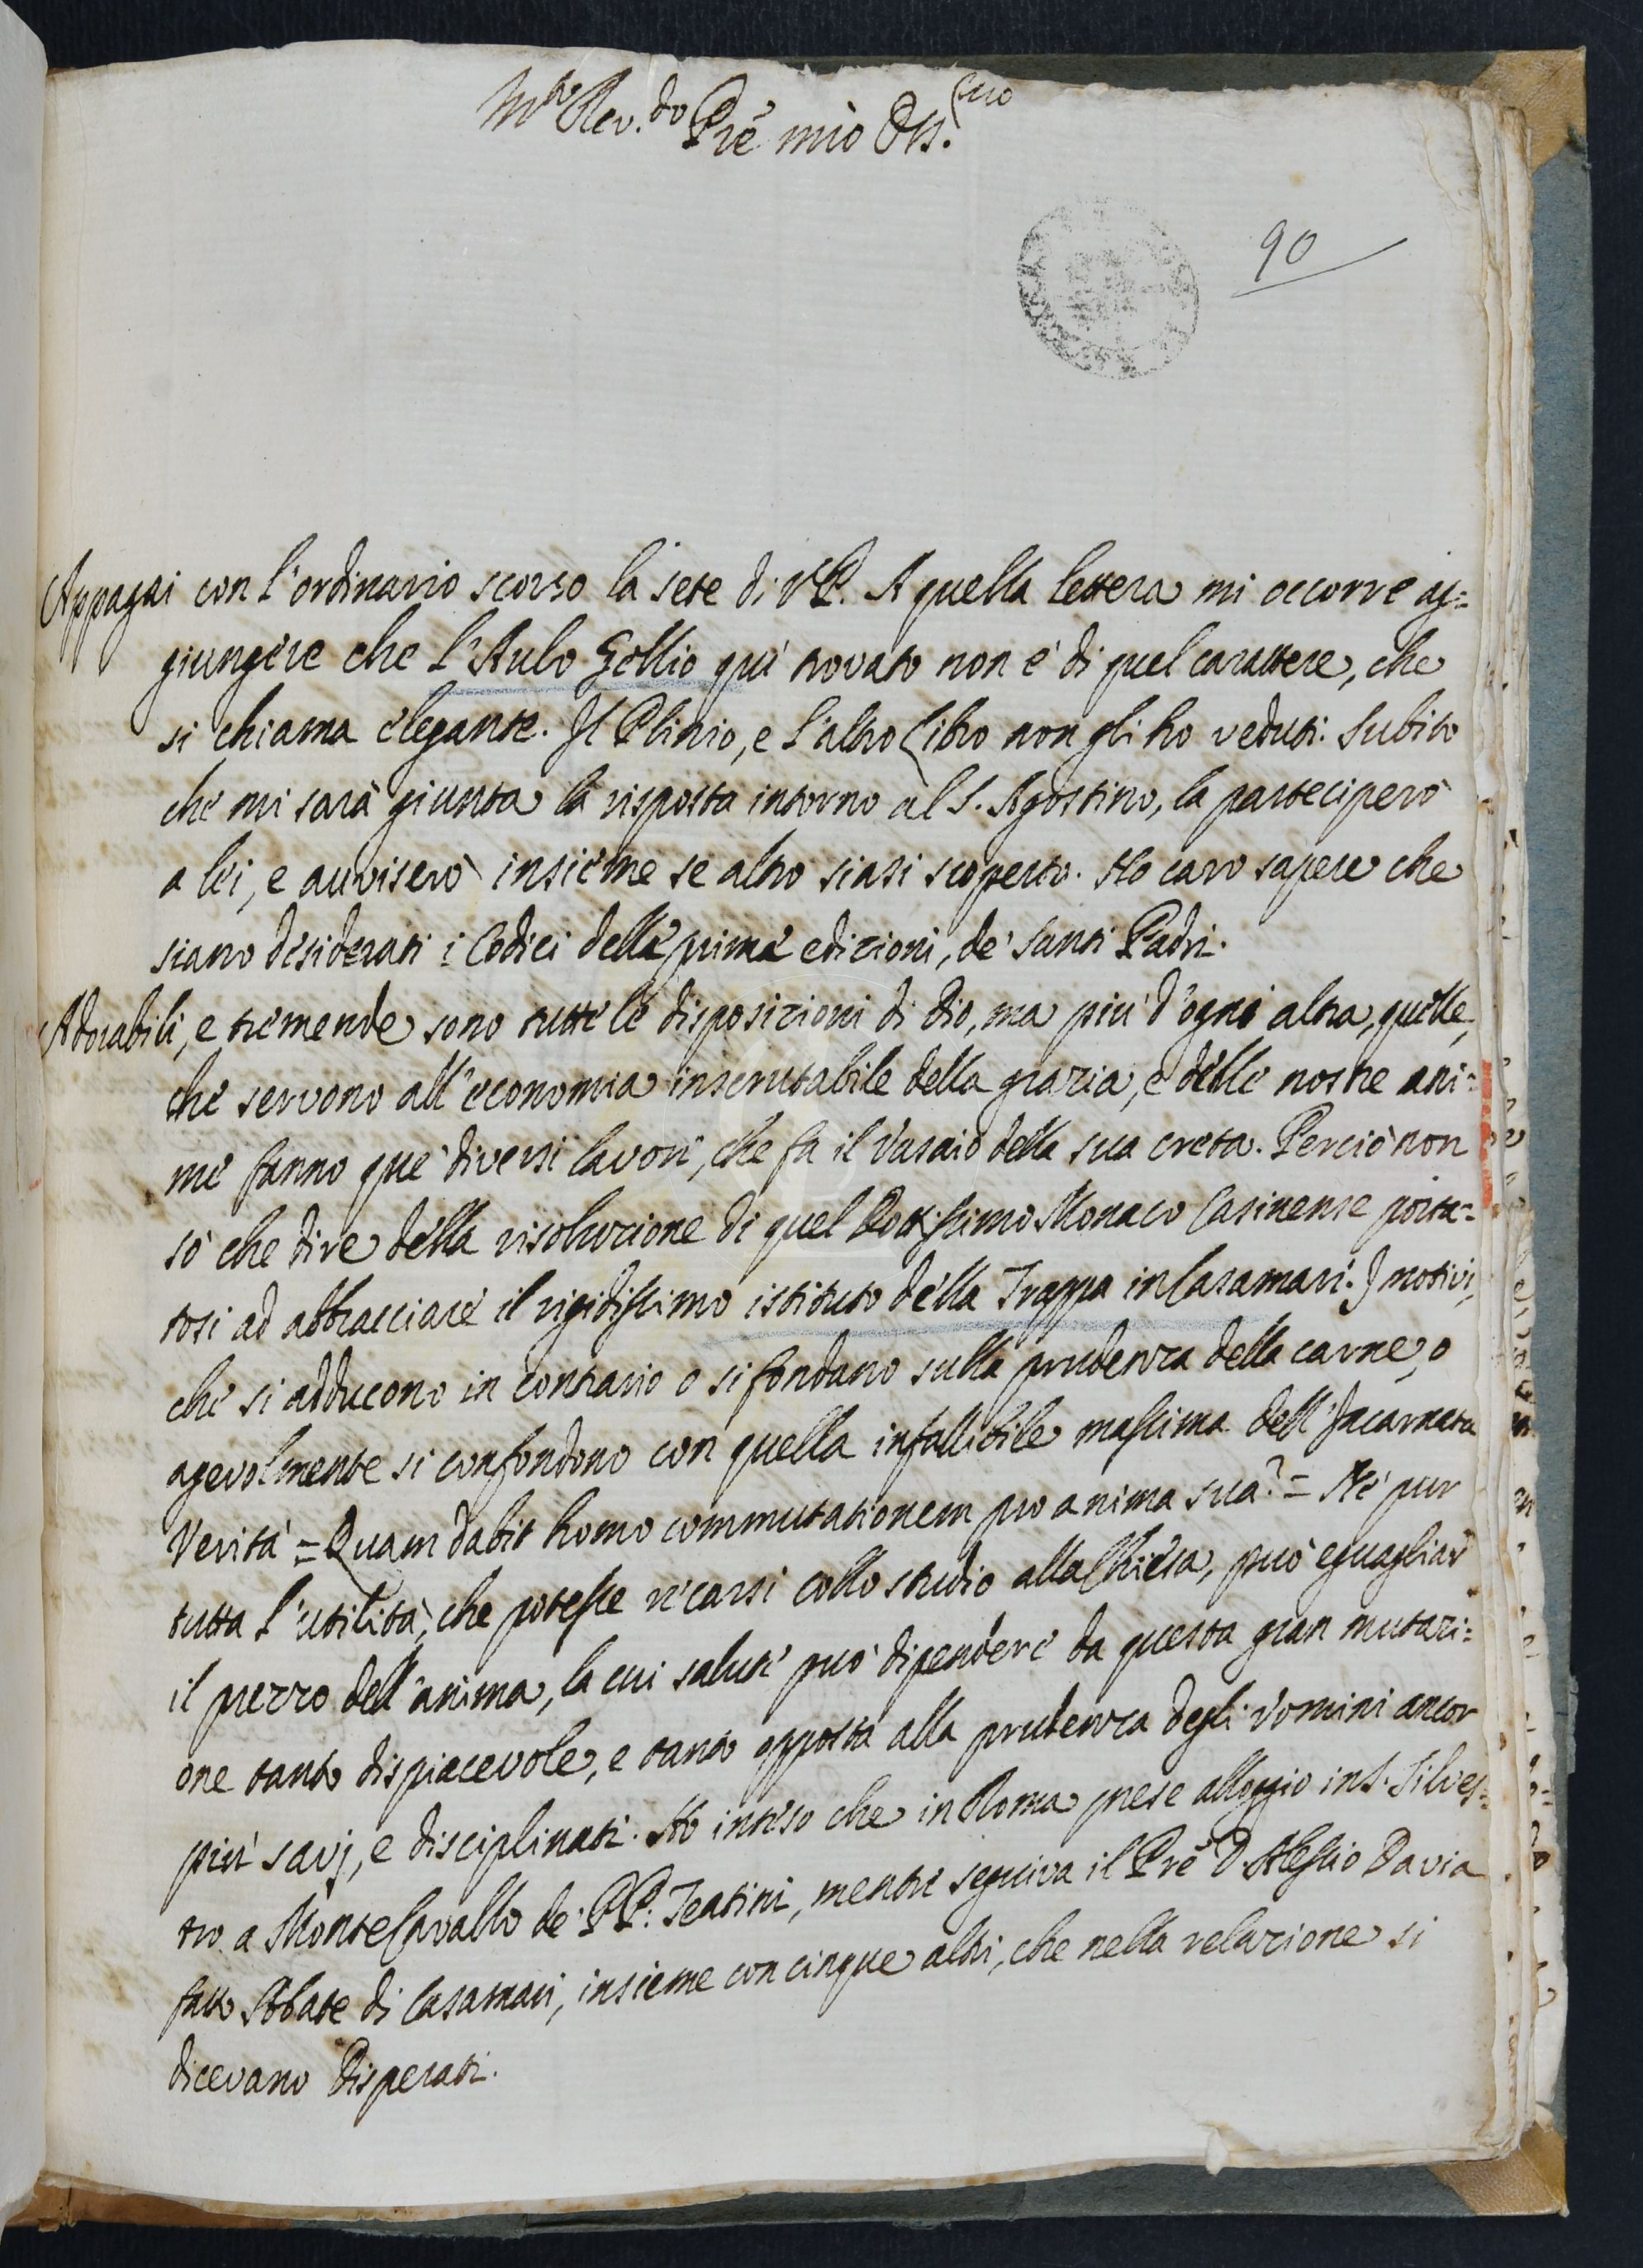 M.to Rev.do Pre mio Oss.mo
90
Appagai con l'ordinario scorso la sete di V.P. A quella lettera mi occorre ag=
giungere che l'Aulo Gellio quì trovato non è di quel carattere, che
si chiama elegante. Il Plinio, e l'altro libro non gli ho veduti. Subito
che mi sarà giunta la risposta intorno al S. Agostino, la parteciperò
a lei, e avviserò insieme se altro siasi scoperto. Ho caro sapere che
siano desiderati i Codici delle prime edizioni, de' Santi Padri.
Adorabili, e tremende sono tutte le disposizioni di Dio, ma più d'ogni altra, quelle,
che servono all'economia inscrutabile della grazia, e delle nostre ani=
me fanno que' diversi lavori, che fa il Vasaio della sua creta. Perciò non
sò che dire della risoluzione di quel Dottissimo Monaco Casinense porta=
tosi ad abbracciare il rigidissimo istituto della Trappa in Casamari. I motivi,
che si adducono in contrario o si fondano sulla prudenza della carne, o
agevolmente si confondono con quella infallibile massima dell'Incarnata
Verità = Quam dabit homo commutationem pro anima sua? = Nè pur
tutta l'utilità, che potesse recarsi collo studio alla Chiesa, può eguagliar
il prezzo dell'anima, la cui salute può dipendere da questa gran mutazi=
one tanto dispiacevole, e tanto opposta alla prudenza degli Uomini ancor
più savj, e disciplinati. Ho inteso che in Roma prese alloggio in S. Silves=
tro a Monte Cavallo de' PP. Teatini, mentre seguiva il Pre D. Alessio Davia
fatto Abate di Casamari, insieme con cinque altri, che nella relazione si
dicevano Disperati.